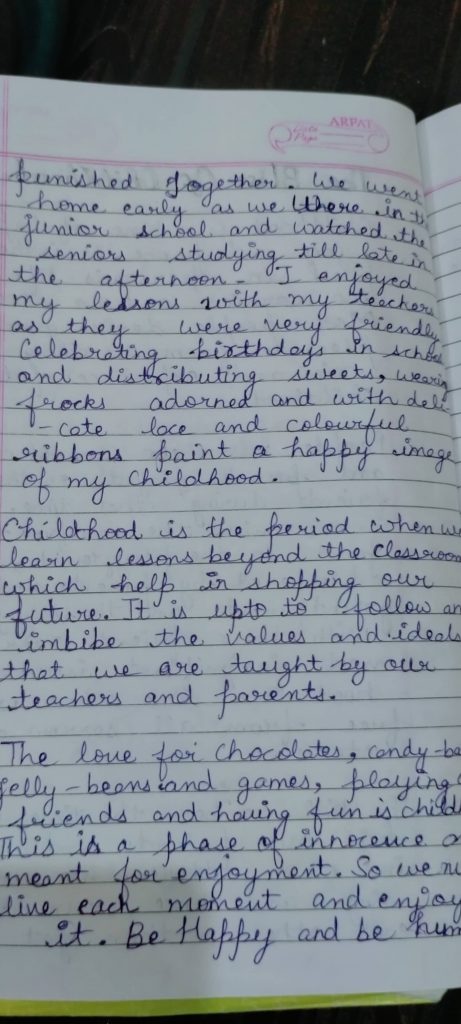 ARPAT
Date
Page
punished together. We went
home early as we there in th
junior school and watched the
seniors studying till late in
the afternoon - I enjoyed
my lessons with my teachers
as they were very friendly
Celebrating birthdays in school
and distributing sweets, wearin
frocks adorned and with deli
- cate lace and colourful
ribbons paint a happy image
of my childhood.
Childhood is the period when we
learn lessons beyond the classroom
which help in shopping our
future. It is upto to follow an
imbibe the values and ideals
that we are taught by our
teachers and parents.
The love for chocolates, candy-ba
jelly-beans and games, playing
friends and having fun is child
This is a phase of innocence
meant for enjoyment. So we
live each moment and enjoy
it. Be Happy and be hum